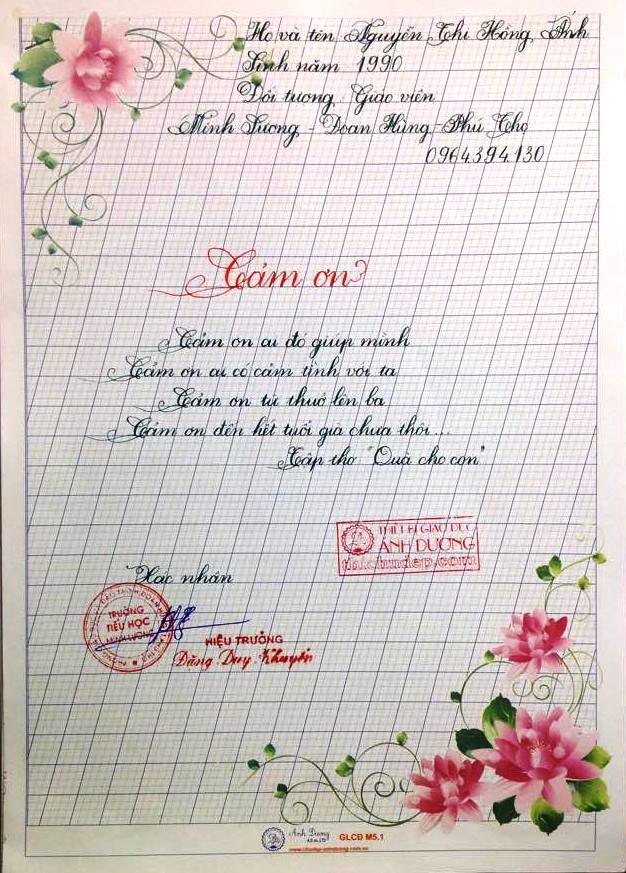 Họ và tên Nguyễn Thị Hồng Ánh
Sinh năm 1990
Đối tượng: Giáo viên
Minh Lương - Đoan Hùng - Phú Thọ
0964.394.130
Cảm ơn
Cảm ơn ai đó giúp mình
Cảm ơn ai có cảm tình với ta
Cảm ơn từ thuở lên ba
Cảm ơn đến hết tuổi già chưa thôi...
Tập thơ "Quà cho con"
THIẾT BỊ GIÁO DỤC
ÁNH DƯƠNG
Xác nhận
TRƯỜNG
TIỂU HỌC
MINH LƯƠNG
HIỆU TRƯỞNG
Đặng Duy Khuyến
Ánh Dương
GLCĐ M5.1